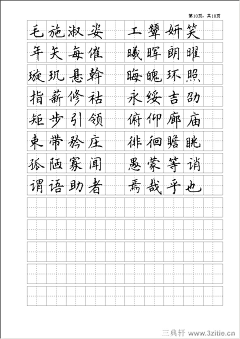 第10页，共10页
毛施淑姿 工颦妍笑
年矢每催 曦晖朗曜
璇玑悬斡 晦魄环照
指薪修祜 永绥吉劭
矩步引领 俯仰廊庙
束带矜庄 徘徊瞻眺
孤陋寡闻 愚蒙等诮
谓语助者 焉哉乎也
www.3zitie.cn